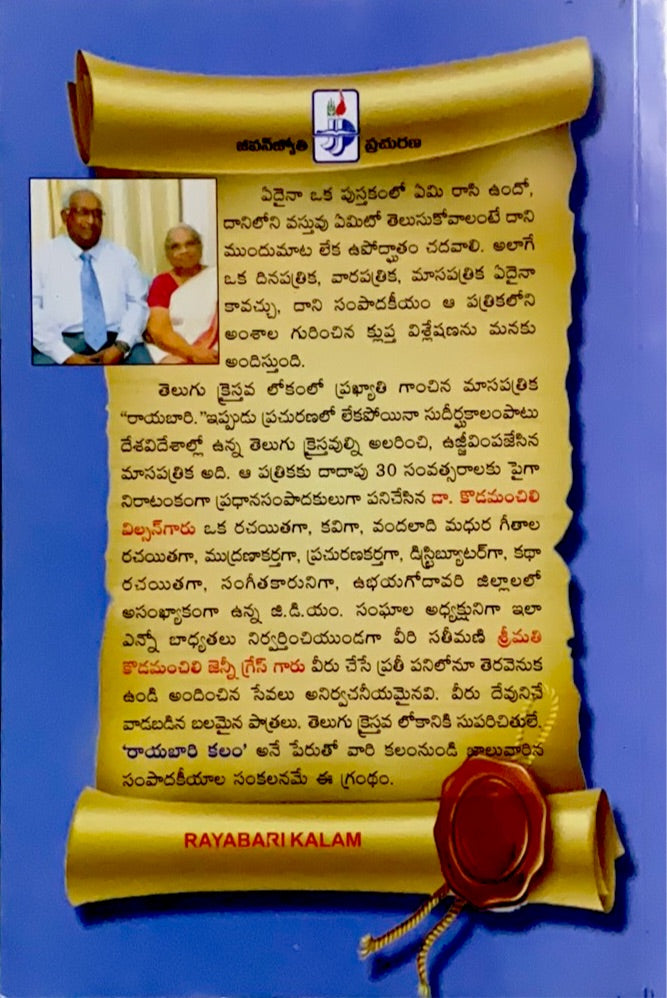 జీవన్‌జ్యోతి ప్రచురణ
ఏదైనా ఒక పుస్తకంలో ఏమి రాసి ఉందో,
దానిలోని వస్తువు ఏమిటో తెలుసుకోవాలంటే దాని
ముందుమాట లేక ఉపోద్ఘాతం చదవాలి. అలాగే
ఒక దినపత్రిక, వారపత్రిక, మాసపత్రిక ఏదైనా
కావచ్చు, దాని సంపాదకీయం ఆ పత్రికలోని
అంశాల గురించిన క్లుప్త విశ్లేషణను మనకు
అందిస్తుంది.
తెలుగు క్రైస్తవ లోకంలో ప్రఖ్యాతి గాంచిన మాసపత్రిక
“రాయబారి.”ఇప్పుడు ప్రచురణలో లేకపోయినా సుదీర్ఘకాలంపాటు
దేశవిదేశాల్లో ఉన్న తెలుగు క్రైస్తవుల్ని అలరించి, ఉజ్జీవింపజేసిన
మాసపత్రిక అది. ఆ పత్రికకు దాదాపు 30 సంవత్సరాలకు పైగా
నిరాటంకంగా ప్రధానసంపాదకులుగా పనిచేసిన డా. కొడమంచిలి
విల్సన్‌గారు ఒక రచయితగా, కవిగా, వందలాది మధుర గీతాల
రచయితగా, ముద్రణాకర్తగా, ప్రచురణకర్తగా, డిస్ట్రిబ్యూటర్‌గా, కథా
రచయితగా, సంగీతకారునిగా, ఉభయగోదావరి జిల్లాలలో
అసంఖ్యాకంగా ఉన్న జి.డి.యం. సంఘాల అధ్యక్షునిగా ఇలా
ఎన్నో బాధ్యతలు నిర్వర్తించియుండగా వీరి సతీమణి శ్రీమతి
కొడమంచిలి జెన్నీ గ్రేస్ గారు వీరు చేసే ప్రతీ పనిలోనూ తెరవెనుక
ఉండి అందించిన సేవలు అనిర్వచనీయమైనవి. వీరు దేవునిచే
వాడబడిన బలమైన పాత్రలు. తెలుగు క్రైస్తవ లోకానికి సుపరిచితులే.
‘రాయబారి కలం’ అనే పేరుతో వారి కలంనుండి జాలువారిన
సంపాదకీయాల సంకలనమే ఈ గ్రంథం.
RAYABARI KALAM